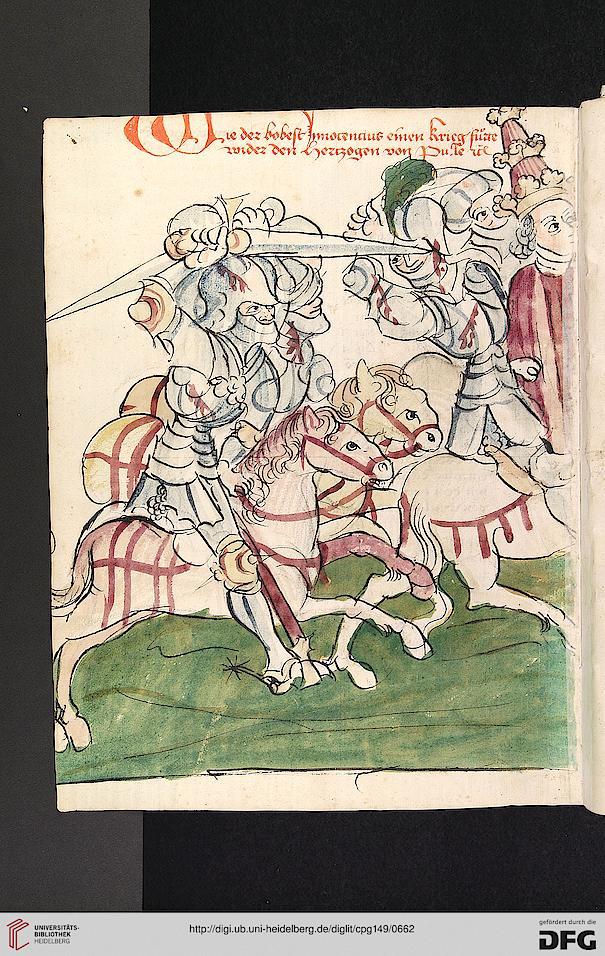 Wie der bobest Innocencius einen krieg fürte
wider den Hertzogen von Pulle ꝛc
UNIVERSITÄTS-
BIBLIOTHEK
HEIDELBERG
http://digi.ub.uni-heidelberg.de/diglit/cpg149/0662
gefördert durch die
DFG